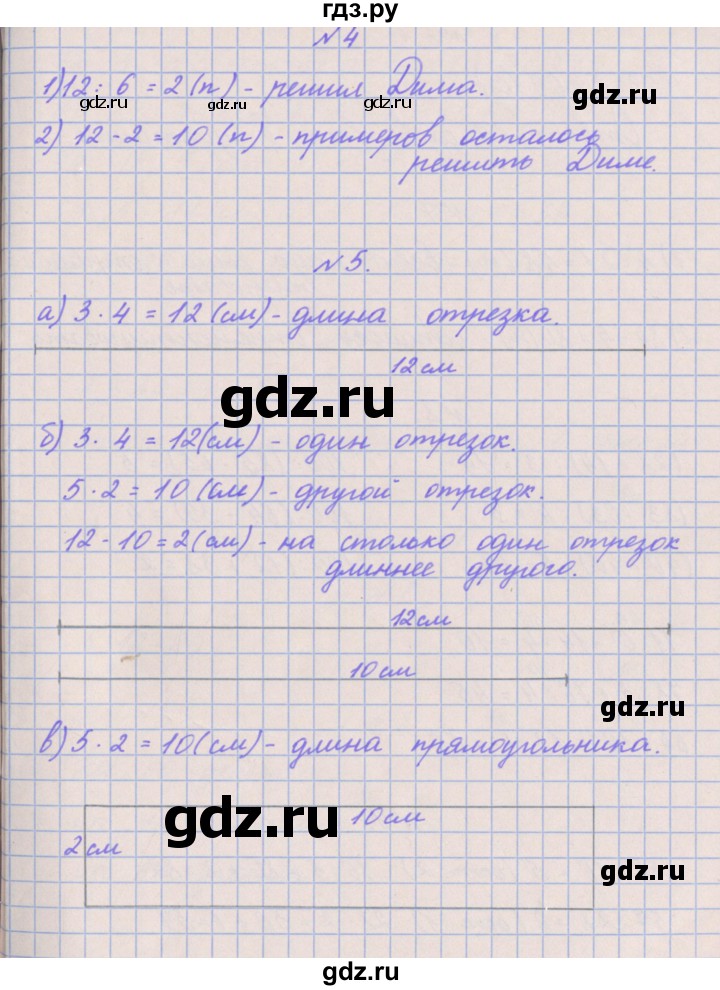 гдз.ру
№ 4
1) 12 : 6 = 2 (п) - решил Дима.
gdz.ru gdz.ru gdz.ru gdz.ru
2) 12 - 2 = 10 (п) - примеров осталось
решить Диме.
№ 5.
а) 3 · 4 = 12 (см) - длина отрезка.
12 см
gdz.ru
б) 3 · 4 = 12 (см) - один отрезок.
5 · 2 = 10 (см) - другой отрезок.
12 - 10 = 2 (см) - на столько один отрезок
длиннее другого.
12 см
10 см
gdz.ru
в) 5 · 2 = 10 (см) - длина прямоугольника.
10 см
gdz.ru
2 см
gdz.ru
gdz.ru